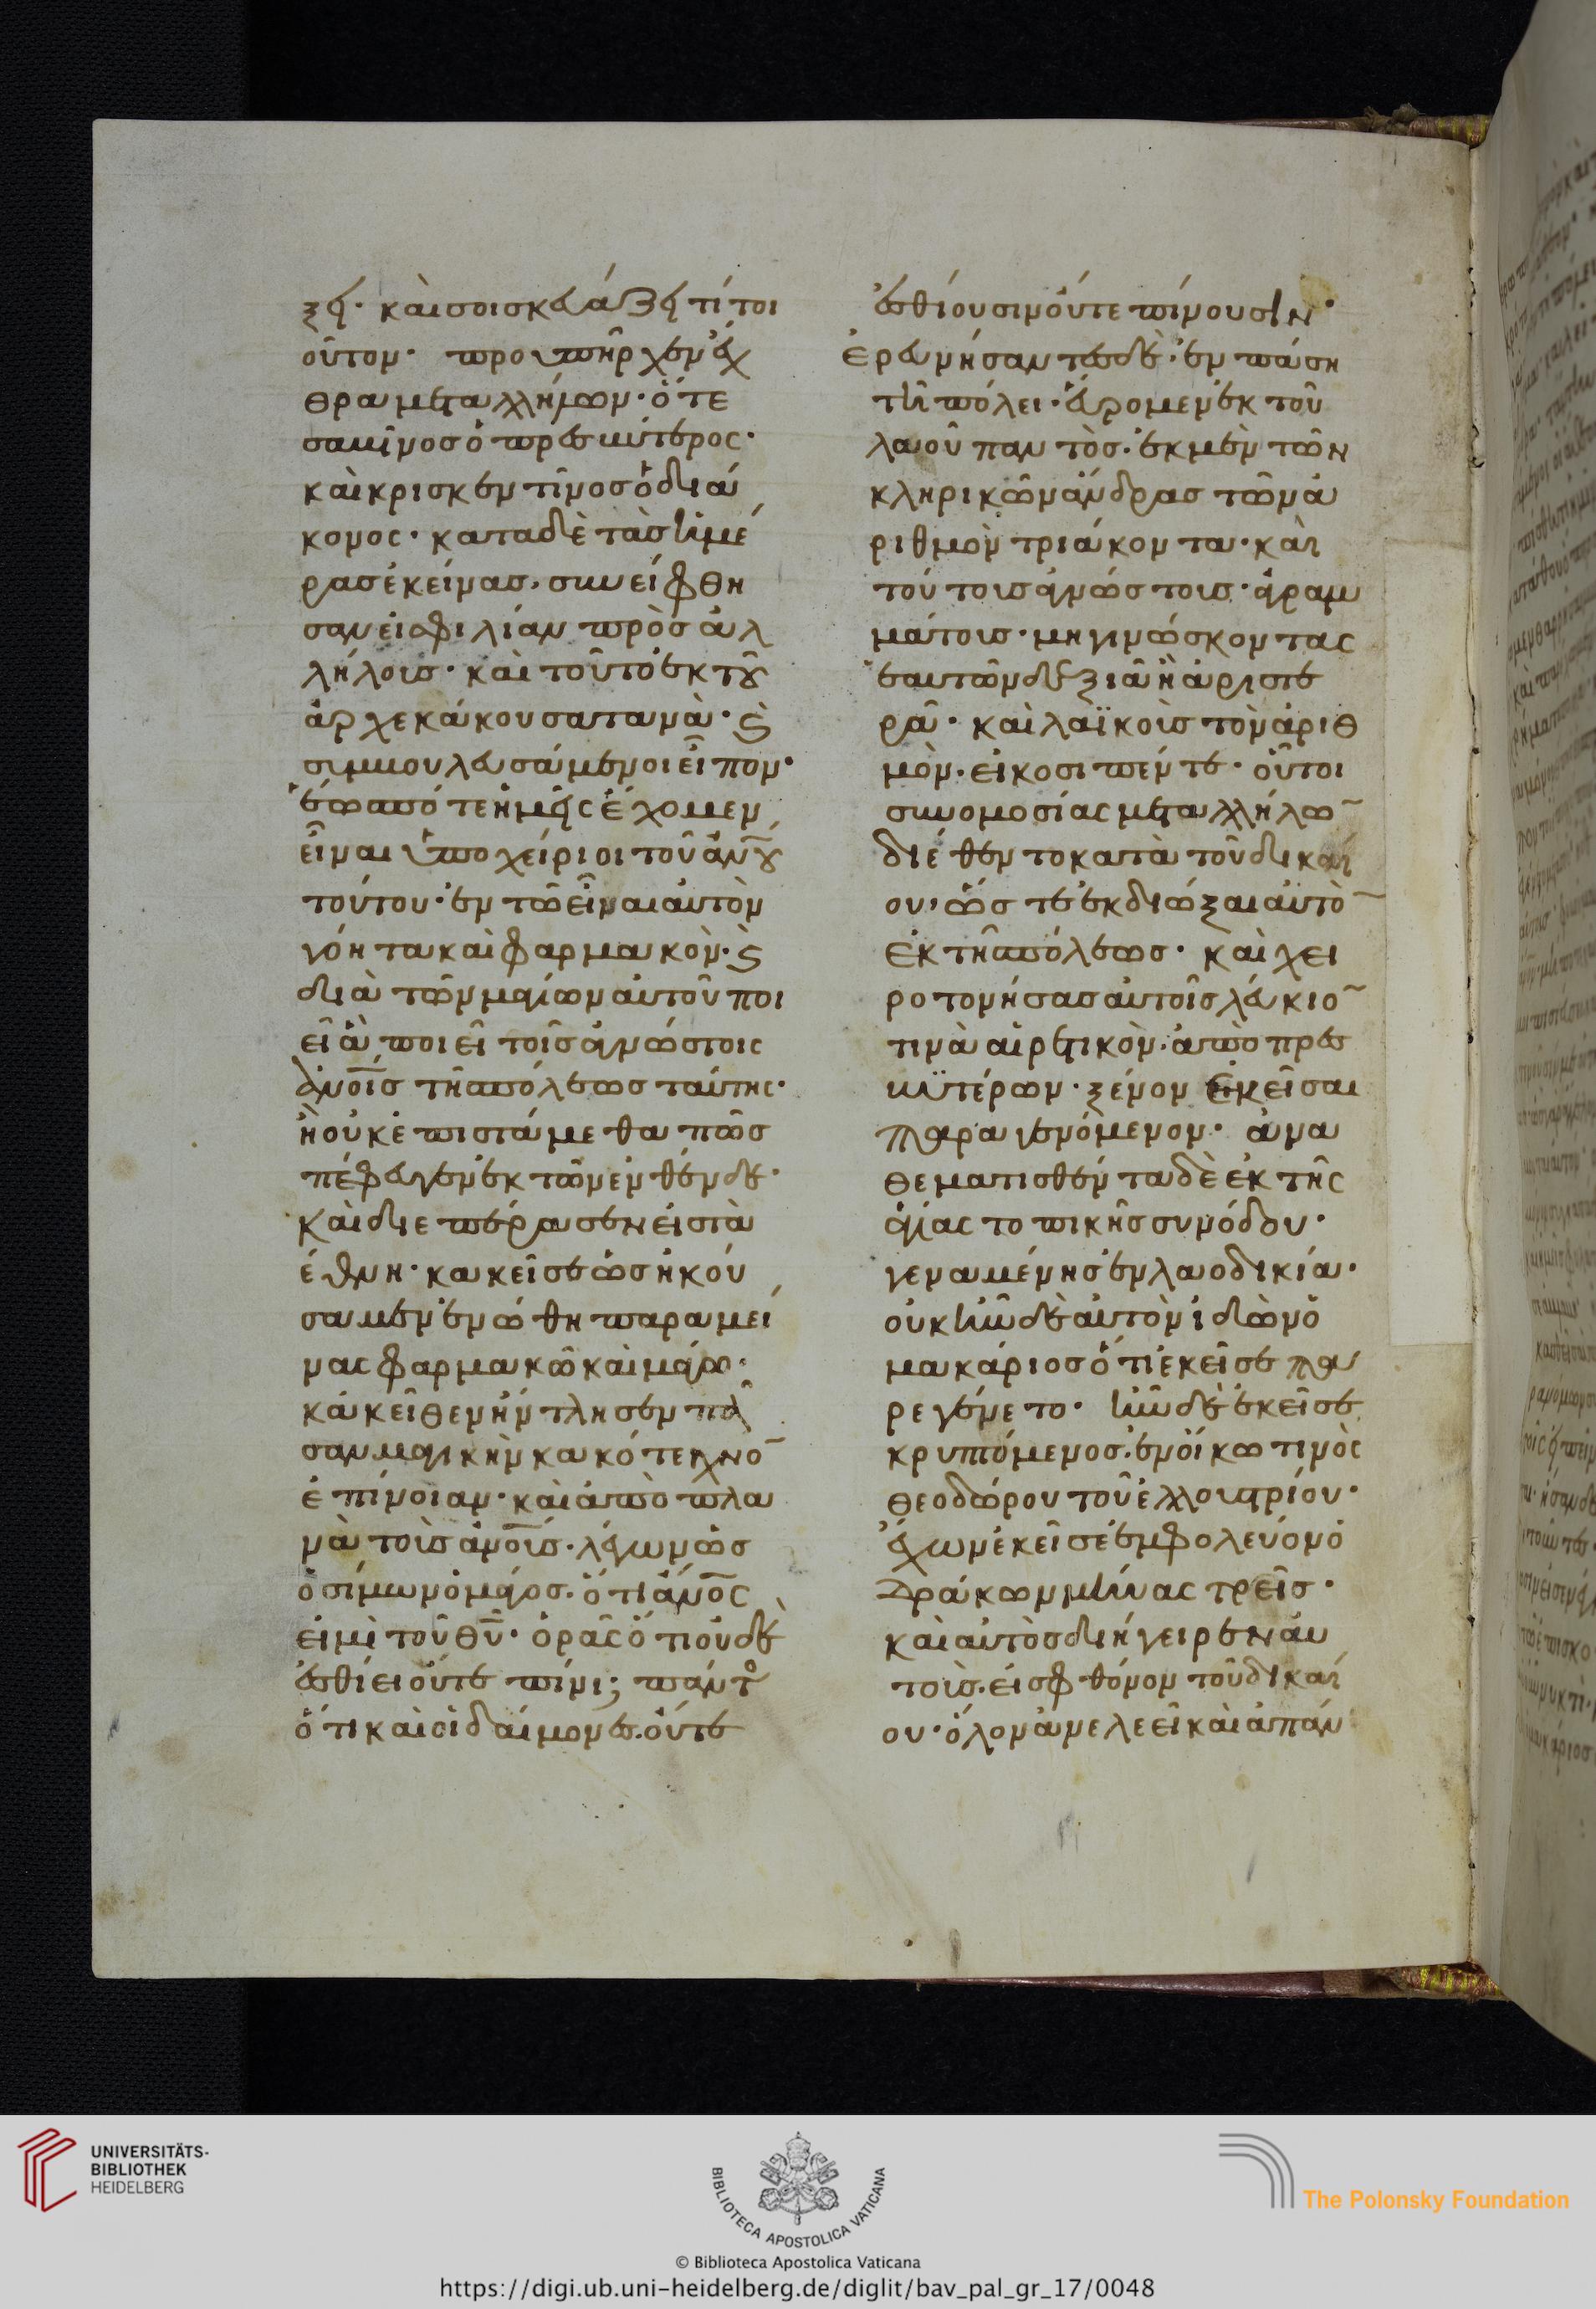 ξει· καὶ σοι σκευάζει τί τοι
οῦτον· προυπῆρχεν ἔχ
θρα μεταλλήλων· ὅτε
σαυῖνος ὁ πρεσβύτερος·
καὶ κρισκεντῖνος ὁ διά
κονος· κατα δὲ τὰς ἡμέ
ρας ἐκείνας, συνείφθη
σαν εἰς φιλίαν πρὸς ἀλ
λήλοις· καὶ τοῦτο ἐκ τοῦ
ἀρχεκάκου σατανὰ· ϗ
συμβουλευσάμενοι εἶπον·
ἕως πότε ἡμεῖς ἔχομεν
εἶναι ὑποχείριοι τοῦ ἀνου
τούτου· ἐν τῶ εἶναι αὐτὸν
γόητα καὶ φαρμακὸν· ϗ
διὰ τῶν μαγίων αὐτοῦ ποι
εῖ ἃ ποιεῖ τοῖς ἀγνώστοις
ἀνοῖς τῆς πόλεως ταύτης·
ἢ οὐκ ἐπιστάμεθα πῶς
πέφευγεν ἐκ τῶν ἐνθένδε·
Καὶ διεπέρασεν εἰς τὰ
ἔθνη· κακεῖσε ὡς ἠκού
σαμεν ἑνώθη παραμεί
νας φαρμακῶ καὶ μάγω·
κἀκεῖθεν ἤντλησεν πᾶ
σαν μαγικὴν κακότεχνο
ἐπίνοιαν· καὶ ἀπὸ πλα
νὰ τοὶς ἀνοις· λέγων ὡς
ὁ σίμων ὁ μάγος· ὅτι ἀνος
εἰμὶ τοῦ θυ· ὁρᾶς ὅτι οὐδὲ
ἐσθίει οὔτε πίνι; πάντ
ὅτι καὶ οἱ δαίμονες· οὔτε
ἐσθίουσιν οὔτε πίνουσιν·
Ἐραυνήσαντες δὲ· ἐν πάση
τῆ πόλει· εὕρομεν ἐκ τοῦ
λαοῦ παντὸς· ἐκ μὲν τῶν
κληρικῶν ἄνδρας τῶν ἀ
ριθμὸν τριάκοντα· καὶ
τούτοις ἀγνώστοις· ἀγραμ
μάτοις· μὴ γινώσκοντας
ἑαυτῶν δεξιᾶ ἢ ἀριστε
ρᾶ· καὶ λαϊκοὶς τὸν ἀριθ
μὸν· εἰκοσιπέντε· οὗτοι
συνομοσίας μεταλλήλω
διέθεντο κατὰ τοῦ δικαί
ου, ὥστε ἐκδιώξαι αὐτὸ
Ἐκ τῆς πόλεως· καὶ χει
ροτονήσας αὐτοῖς λεύκιο
τινὰ αἱρετικὸν· ἀπὸ πρεσ
βυτέρων· ξένον ἐκεῖσαι
παραγενόμενον· ἀνα
θεματισθέντα δὲ ἐκ τῆς
ἁγίας τοπικῆς συνόδου·
γεναμένης ἐν λαοδικία·
οὐκ ἦν δὲ αὐτὸν ἰδὼν ὁ
μακάριος ὅτι ἐκεῖσε πα
ρεγένετο· ἦν δὲ ἐκεῖσε
κρυπτόμενος· ἐν οἴκω τινὸς
θεοδώρου τοῦ ἐλλουτρίου·
ἔχων ἐκεῖσε ἐμφολεύον ὁ
Δράκων μῆνας τρεῖς·
καὶ αὐτὸς διήγειρεν αὐ
τοὶς· εἰς φθόνον τοῦ δικαί
ου· ὅλον ἀνελεεῖ καὶ ἀπάν
UNIVERSITÄTS-
BIBLIOTHEK
HEIDELBERG
BIBLIOTECA APOSTOLICA VATICANA
The Polonsky Foundation
© Biblioteca Apostolica Vaticana
https://digi.ub.uni-heidelberg.de/diglit/bav_pal_gr_17/0048